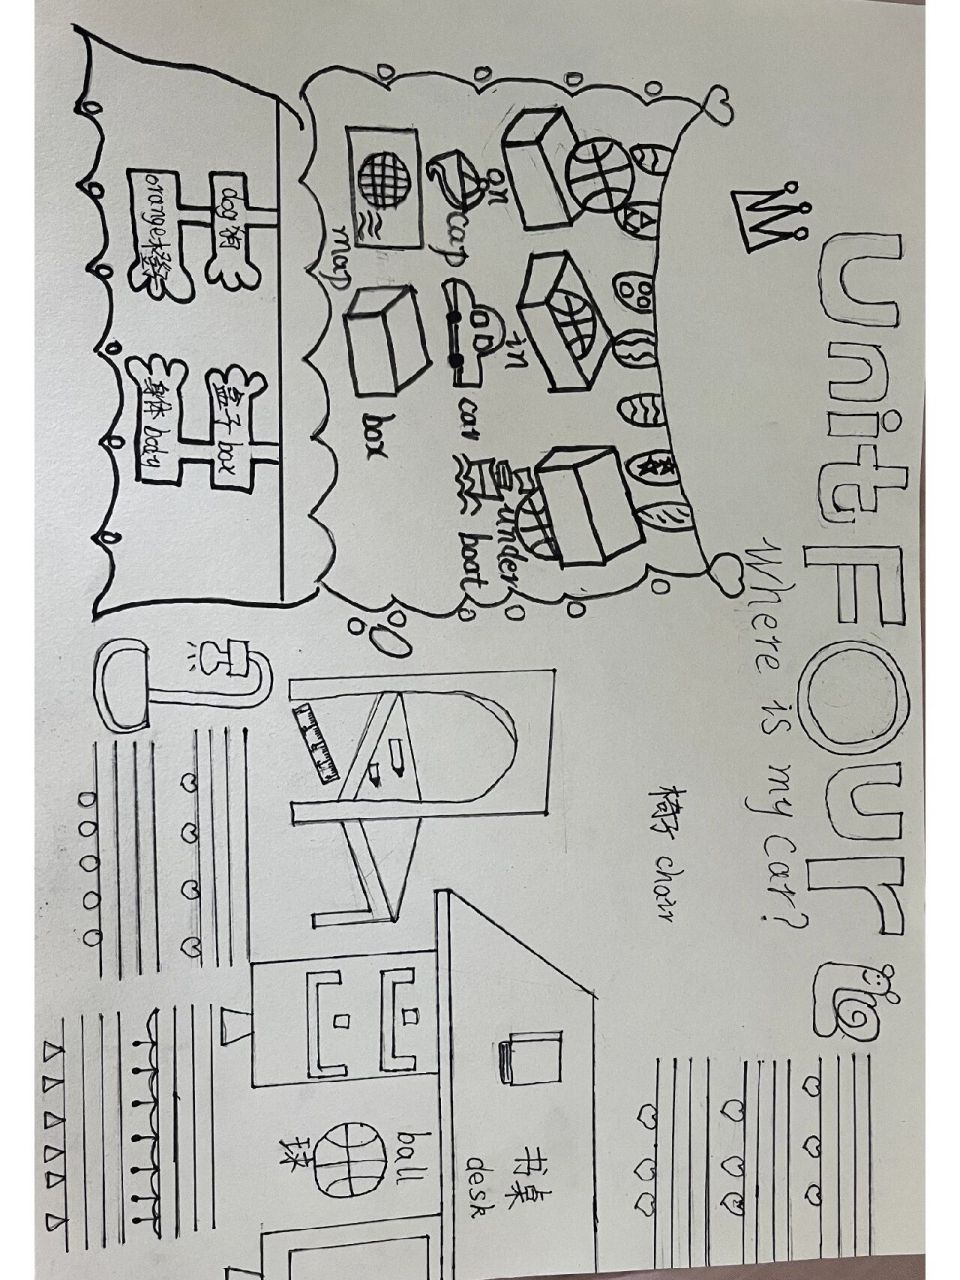 UnitFOur
Where is my car?
on
in
under
cap
car
boat
map
box
dog 狗
盒子 box
orange橙子
身体 body
椅子 chair
书桌
desk
ball
球